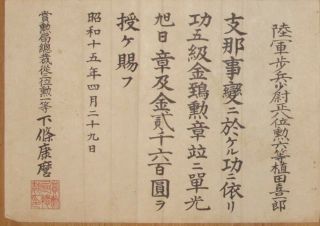 陸軍歩兵少尉正八位勲六等植田喜一郎
支那事變ニ於ケル功ニ依リ
功五級金鵄勲章竝ニ單光
旭日章及金貳千六百圓ヲ
授ケ賜フ
昭和十五年四月二十九日
賞勲局總裁從三位勲一等下條康麿